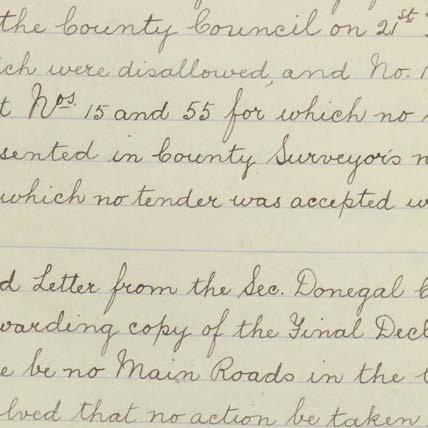 the County Council on 21st
ich were disallowed, and No. 1
t Nos. 15 and 55 for which no
sented in County Surveyor's
which no tender was accepted w
d Letter from the Sec. Donegal C
warding copy of the Final Decl
e be no Main Roads in the
lved that no action be taken